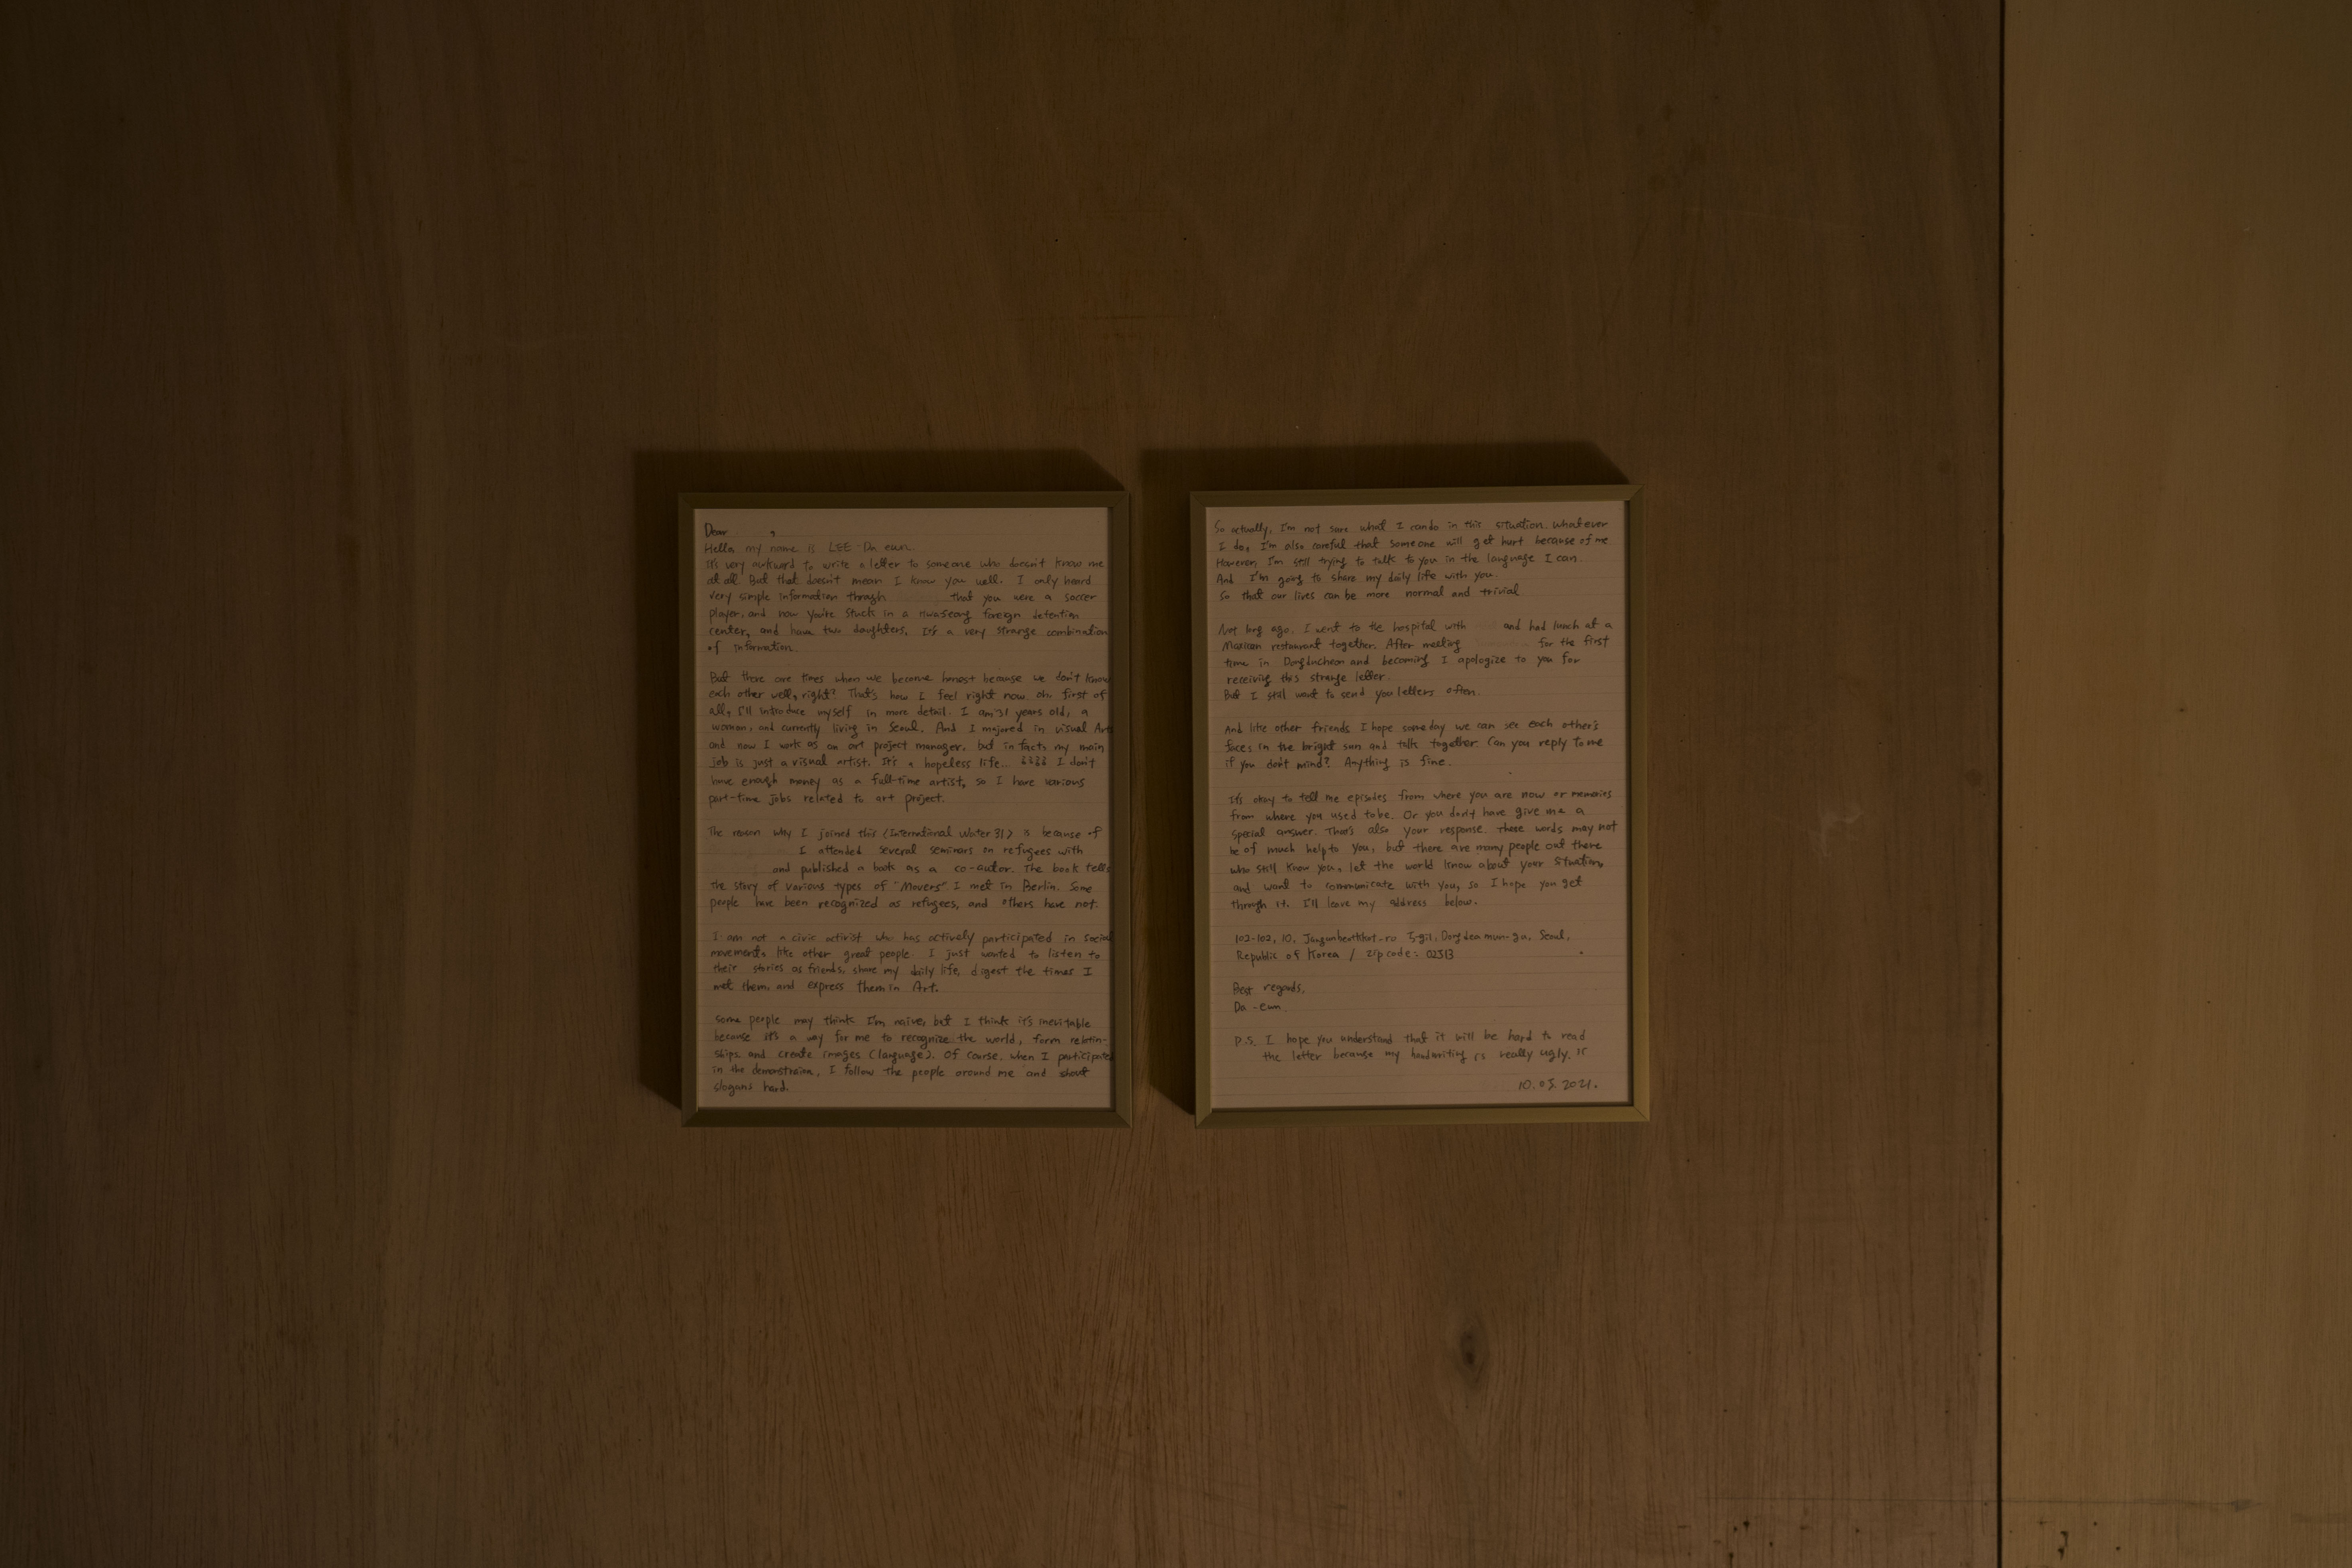 Dear ,
Hello, my name is LEE Da eun.
It's very awkward to write a letter to someone who doesn't know me
at all. But that doesn't mean I know you well. I only heard
very simple information through that you were a soccer
player, and now you're stuck in a Hwaseong foreign detention
center, and have two daughters. It's a very strange combination
of information.
But there are times when we become honest because we don't know
each other well, right? That's how I feel right now. oh, first of
all, I'll introduce myself in more detail. I am 31 years old, a
woman, and currently living in Seoul. And I majored in visual Arts
and now I work as an art project manager, but in facts my main
job is just a visual artist. It's a hopeless life... I don't
have enough money as a full-time artist, so I have various
part-time jobs related to art project.
The reason why I joined this (International Water 31) is because of
I attended several seminars on refugees with
and published a book as a co-autor. The book tells
the story of various types of "Movers" I met in Berlin. Some
people have been recognized as refugees, and others have not.
I am not a civic activist who has actively participated in social
movements like other great people. I just wanted to listen to
their stories as friends, share my daily life, digest the times I
met them, and express them in Art.
Some people may think I'm naive, but I think it's inevitable
because it's a way for me to recognize the world, form relation-
ships, and create images (language). Of course, when I participated
in the demonstraion, I follow the people around me and shout
slogans hard.
So actually, I'm not sure what I can do in this situation. Whatever
I do, I'm also careful that someone will get hurt because of me
However, I'm still trying to talk to you in the language I can.
And I'm going to share my daily life with you.
So that our lives can be more normal and trivial
Not long ago, I went to the hospital with and had lunch at a
Maxican restaurant together. After meeting for the first
time in Dongducheon and becoming I apologize to you for
receiving this strange letter.
But I still want to send you letters often.
And like other friends I hope someday we can see each other's
faces in the bright sun and talk together. Can you reply to me
if you don't mind? Anything is fine.
It's okay to tell me episodes from where you are now or memories
from where you used to be. Or you don't have give me a
special answer. That's also your response. These words may not
be of much help to you, but there are many people out there
who still know you, let the world know about your situation,
and want to communicate with you, so I hope you get
through it. I'll leave my address below.
102-102, 10, 5-gil, Dongdaemun-gu, Seoul,
Republic of Korea / zip code: 02513
Best regards,
Da-eun
P.S. I hope you understand that it will be hard to read
the letter because my handwriting is really ugly.
10.05.2021.